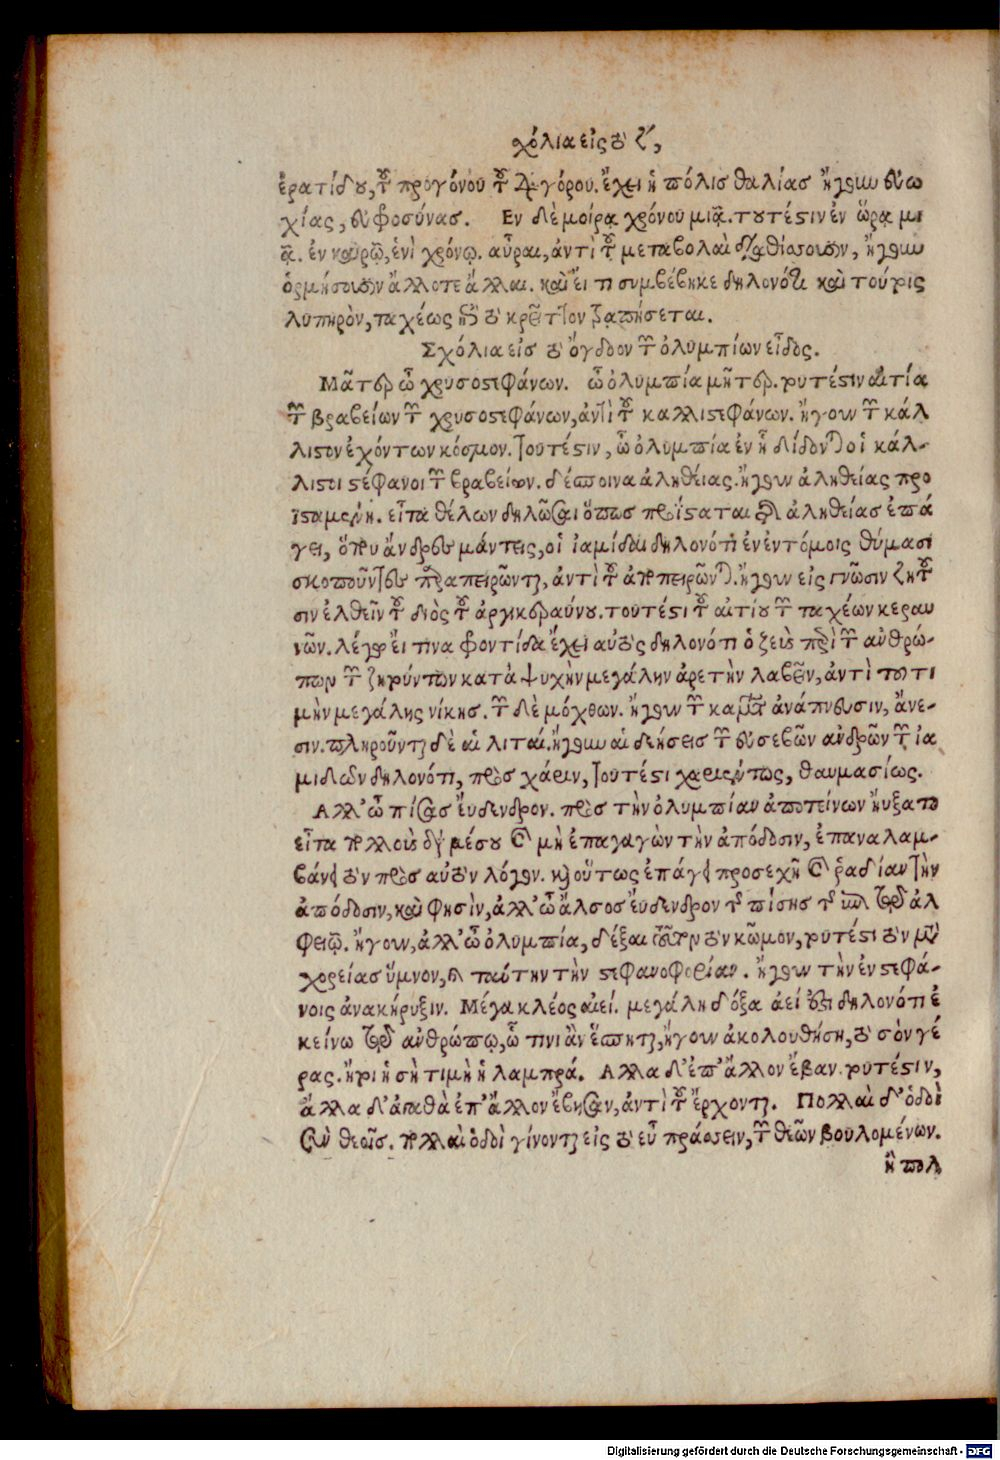 χόλια εἰς τὸ ζ´,
ἐρατίδου, τοῦ προγόνου τοῦ Διαγόρου. ἔχει ἡ πόλις θαλίας ἤγουν εὐω
χίας, εὐφροσύνας. Εν δὲ μοίρᾳ χρόνου μιᾷ. τουτέστιν ἐν ὥρᾳ μι
ᾷ. ἐν καιρῷ, ἑνὶ χρόνῳ. αὖραι, ἀντὶ τοῦ μεταβολαὶ διαιθύσσουσιν, ἤγουν
ὁρμήσουσιν ἄλλοτε ἄλλαι. καὶ εἴ τι συμβέβηκε δηλονότι καὶ τούτοις
λυπηρὸν, ταχέως εἰς τὸ κρεῖττον
Σχόλια εἰς τὸ ὄγδοον τῶν ὀλυμπίων εἶδος.
Μᾶτερ ὦ χρυσοστεφάνων. ὦ ὀλυμπία μῆτερ. τουτέστιν αἰτία
τῶν βραβείων τῶν χρυσοστεφάνων, ἀντὶ τοῦ καλλιστεφάνων. ἤγουν τῶν κάλ
λιστον ἐχόντων κόσμον. τουτέστιν, ὦ ὀλυμπία ἐν ᾗ δίδονται οἱ κάλ-
λιστοι στέφανοι τῶν βραβείων. δέσποινα ἀληθείας. ἤγουν ἀληθείας προ
ϊσταμένη. εἶτα θέλων δηλῶσαι ὅπως προΐσταται τῆς ἀληθείας ἐπά
γει, ὅπου ἄνδρες μάντεις, οἱ ἰαμίδαι δηλονότι ἐν ἐντόμοις θύμασι
σκοποῦντες παραπειρῶνται, ἀντὶ τοῦ ἀποπειρῶνται. ἤγουν εἰς γνῶσιν ζητοῦ
σιν ἐλθεῖν τοῦ διὸς τοῦ ἀργικεραύνου. τουτέστι τοῦ αἰτίου τῶν ταχέων κεραυ
νῶν. λέγω εἴ τινα φροντίδα ἔχει αὐτὸς δηλονότι ὁ ζεὺς περὶ τῶν ἀνθρώ-
πων τῶν ζητούντων κατὰ ψυχὴν μεγάλην ἀρετὴν λαβεῖν, ἀντὶ τοῦ τι
μὴν μεγάλης νίκης. τῶν δὲ μόχθων. ἤγουν τῶν καμάτων ἀνάπνευσιν, ἄνε-
σιν. πληροῦνται δὲ αἱ λιταί. ἤγουν αἱ δεήσεις τῶν εὐσεβῶν ἀνδρῶν τῶν ἰα
μιδῶν δηλονότι, πρὸς χάριν, τουτέστι χαριέντως, θαυμασίως.
Αλλ’ ὦ πίσας εὔδενδρον. πρὸς τὴν ὀλυμπίαν ἀποτείνων ἤρξατο
εἶτα πολλοὺς διὰ μέσου καὶ μὴ ἐπαγαγὼν τὴν ἀπόδοσιν, ἐπαναλαμ-
βάνει τὸν πρὸς αὐτὸν λόγον. καὶ οὕτως ἐπάγει προσεχῆ καὶ ῥαδίαν τὴν
ἀπόδοσιν, καὶ φησὶν, ἀλλ’ ὦ ἄλσος εὔδενδρον τῆς πίσης τῆς ἐπὶ τῷ ἀλ
φειῷ. ἤγουν, ἀλλ’ ὦ ὀλυμπία, δέξαι τοῦτον τὸν κῶμον, τουτέστι τὸν μετὰ
χορείας ὕμνον, καὶ ταύτην τὴν στεφανοφορίαν. ἤγουν τὴν ἐν στεφά-
νοις ἀνακήρυξιν. Μέγα κλέος αἰεί. μεγάλη δόξα ἀεί ἐστι δηλονότι ἐ
κείνω τῷ ἀνθρώπῳ, ὧ τινι ἂν ἕπηται, ἤγουν ἀκολουθήσῃ, τὸ σὸν γέ
ρας. ἤτοι ἡ σὴ τιμὴ ἡ λαμπρά. Αλλα δ’ ἐπ’ ἄλλον ἔβαν. τουτέστιν,
ἄλλα δ’ ἀγαθὰ ἐπ’ ἄλλον ἔβησαν, ἀντὶ τοῦ ἔρχονται. Πολλαὶ δ’ ὁδοὶ
σὺν θεοῖς. πολλαὶ ὁδοὶ γίνονται εἰς τὸ εὖ πράσσειν, τῶν θεῶν βουλομένων.
ἢ πολ
Digitalisierung gefördert durch die Deutsche Forschungsgemeinschaft - DFG